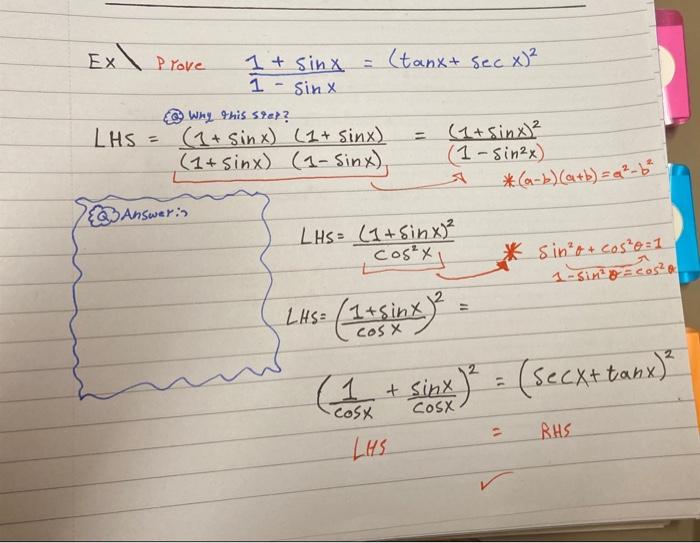 Ex\ Prove 1 + sinx / 1 - sinx = (tanx + sec x)²
Q Why this step?
LHS = (1 + sinx) (1 + sinx) / (1 + sinx) (1 - sinx) = (1 + sinx)² / (1 - sin²x)
* (a-b)(a+b) = a² - b²
Q Answer:
LHS = (1 + sinx)² / cos²x
* sin²θ + cos²θ = 1
1 - sin²θ = cos²θ
LHS = (1 + sinx / cosx)² =
(1 / cosx + sinx / cosx)² = (secx + tanx)²
LHS = RHS
✓